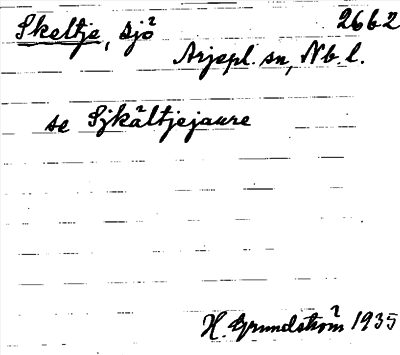 Skeltje, sjö 2662
Arjepl. sn, Nb l.
se Sjkältjejaure
H. Grundström 1935